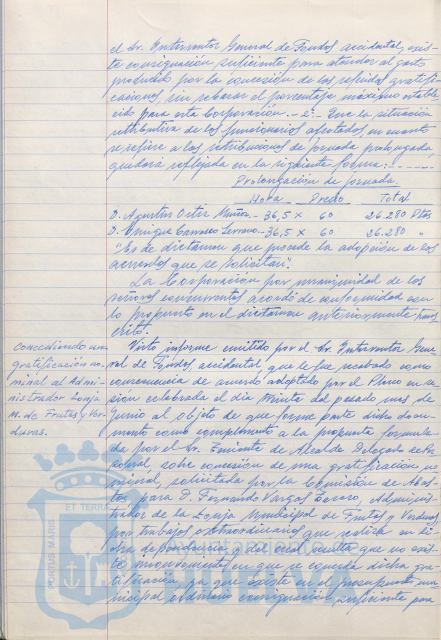 el Sr. Interventor General de Fondos accidental, exis-
te consignación suficiente para atender al gasto
producido por la concesión de las referidas gratifi-
caciones, sin rebasar el porcentaje máximo estable
cido para esta Corporación.- 2º- Que la situación
retributiva de los funcionarios afectados, en cuanto
se refiere a las retribuciones de jornada prolongada,
quedará reflejada en la siguiente forma: - - - -
Prolongación de jornada.
Hora Precio Total
D. Agustín Ortiz Muñoz.- 36,5 x 60 26.280 Ptas
D. Enrique Carrasco Serrano.- 36,5 x 60 26.280 "
"Es de dictamen que procede la adopción de los
acuerdos que se solicitan".
La Corporación por unanimidad de los
señores concurrentes acordó de conformidad con
lo propuesto en el dictamen anteriormente trans
crito.
Concediendo una
gratificación no-
minal al Admi-
nistrador Lonja
M. de Frutas y Ver-
duras.
Visto informe emitido por el Sr. Interventor Gene
ral de Fondos accidental, que le fue recabado como
consecuencia de acuerdo adoptado por el Pleno en se
sión celebrada el día veinte del pasado mes de
Junio al objeto de que forme parte dicho docu-
mento como complemento a la propuesta formula
da por el Sr. Teniente de Alcalde Delegado de Per
sonal, sobre concesión de una gratificación no
minal, solicitada por la Comisión de Abas-
tos para D. Fernando Vargas, Adminis-
trador de la Lonja Municipal de Frutas y Verduras
por trabajos extraordinarios que realiza en di-
cha dependencia y del cual resulta que no exis-
te inconveniente en que se conceda dicha gra-
tificación, ya que existe en el presupuesto mu-
nicipal ordinario consignación suficiente para
PORTUS MARIS
ET TERRAE